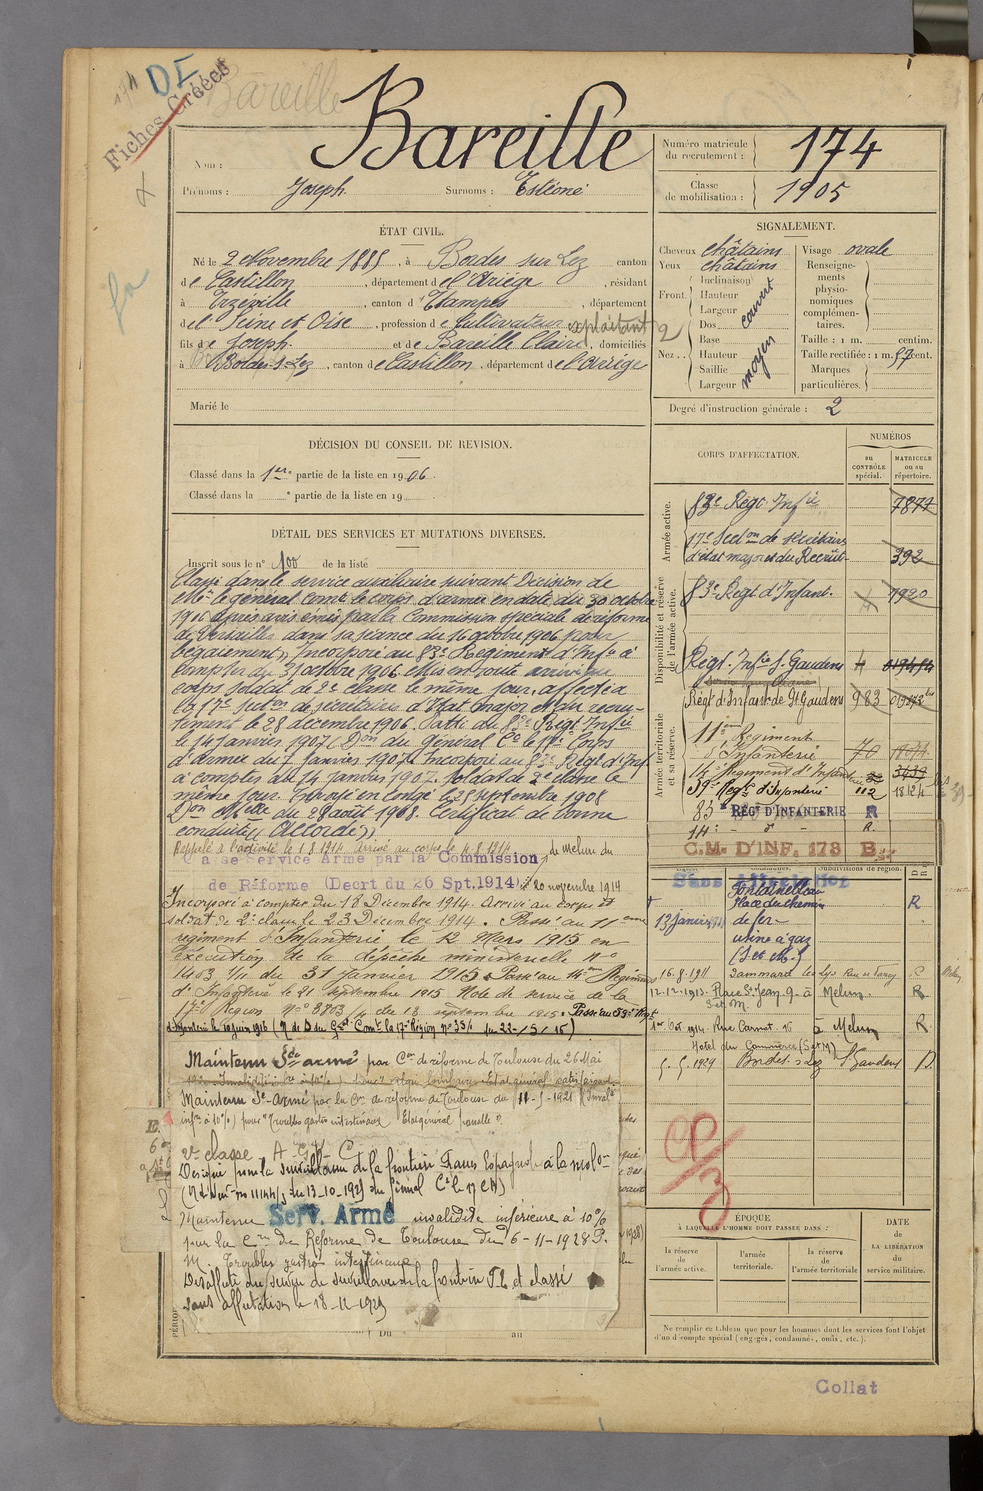 DI
Fiches Créées
Bareille
Nom : Bareille
Prénoms : Joseph Surnoms : Estéoné
Numéro matricule du recrutement : 174
Classe de mobilisation : 1905
ÉTAT CIVIL.
Né le 2 Novembre 1885, à Bordes sur Lez canton
de Castillon, département de l'Ariége, résidant
à , canton d'Etampes, département
de Seine et Oise, profession de Cultivateur exploitant
fils de Joseph et de Bareille Claire, domiciliés
à Bordes-s-Lez, canton de Castillon, département de l'Ariége
Marié le
SIGNALEMENT.
Cheveux châtains
Yeux châtains
Front. Inclinaison Hauteur Largeur couvert
Nez.. Dos Base Hauteur Saillie Largeur moyen
Visage ovale
Renseignements physionomiques complémentaires.
2
Taille : 1 m. centim.
Taille rectifiée : 1 m. 57 cent.
Marques particulières.
Degré d'instruction générale : 2
DÉCISION DU CONSEIL DE REVISION.
Classé dans la 1ère partie de la liste en 1906.
Classé dans la e partie de la liste en 19
DÉTAIL DES SERVICES ET MUTATIONS DIVERSES.
Inscrit sous le n° 100 de la liste
Classé dans le service auxiliaire suivant Décision de
Mr le général comt le corps d'armée en date du 30 octobre
1906 après avis émis par la Commission spéciale de réforme
de Versailles dans sa séance du 16 octobre 1906 pour
bégaiement, Incorporé au 83e Régiment d'Infie à
compter du 31 octobre 1906. Mis en route arrivé au
corps soldat de 2e classe le même jour. affecté à
la 17e section de secrétaires d'Etat major et du recru-
tement le 28 décembre 1906. Passé au 83e Régt Infie
le 14 janvier 1907 (Don du Général Ct le 17e Corps
d'Armée du 7 janvier 1907). Incorporé au 83e Régt d'Inf
à compter du 14 janvier 1907. Soldat de 2e classe le
même jour. Envoyé en congé le 25 septembre 1908
Don Mlle du 28 août 1908. Certificat de bonne
conduite "Accordé"
Rappelé à l'activité le 1.8.1914. Arrivé au corps le 4.8.1914
Classé Service Armé par la Commission de Melun du
de Réforme (Decrt du 26 Spt.1914) 20 novembre 1914
Incorporé à compter du 18 Décembre 1914. Arrivé au corps et
soldat de 2e classe le 23 Décembre 1914. Passé au 11eme
régiment d'Infanterie le 12 Mars 1915 en
exécution de la dépêche ministerielle no
1403 1/11 du 31 janvier 1915. Passé au 14me Régiment
d'Infanterie le 21 septembre 1915 Note de service de la
17e Région no 3803/4 du 18 septembre 1915. Passé au 59e Régt
d'Infanterie le 20 juin 1916 (N de S du Gal Comt la 17e Région no 35/4 du 22/5/16)
Maintenu Sce armé par Con de réforme de Toulouse du 26 Mai
Maintenu Sce-Armé par la Con de reforme de Toulouse du 11-5-1921 (Inval
infre à 10%) pour "Troubles gastro intestinaux Etat général
2e classe
Désigné pour la surveillance de la frontière Franco Espagnole à la
Maintenu Serv. Armé invalidité inférieure à 10%
par la Con de Réforme de Toulouse du 6-11-1928 P.
M. Troubles gastro intestinaux
Desaffecté du service de surveillance de la frontière et classé
sans affectation le 18-12-1929
Du au
CORPS D'AFFECTATION.
NUMÉROS
AU CONTRÔLE spécial.
MATRICULE ou au répertoire.
Armée active.
Disponibilité et réserve de l'armée active.
Armée territoriale et sa réserve.
83e Régt Infie 7877
17e Section de secrétaires
d'état major et du Recrut. 392
83e Régt d'Infant. 7920
Régt. Infie St. Gaudens 4
Régt d'Infant de St Gaudens 983
11eme Régiment
d'Infanterie 70
14 Régiment d'Infanterie
59e Regt d'Infanterie 112 18124
83 REGt D'INFANTERIE R
14 - d° - R.
C.M. D'INF. 178 B
Sans Affectation
COMMUNES. Subdivisions de région.
13 Janvier Fontainebleau
Place du chemin
de fer
usine à gaz
(S et M.) R
16.8.1911 Dammarie les Lys
12-12-1913 Place St Jean 9 à Melun. R
S et M.
1er Oct 1914 Rue Carnot 16 à Melun R
Hotel du Commerce (S et M)
5.5.1929 Bordes s Lez St Gaudens D.
ÉPOQUE
À LAQUELLE L'HOMME DOIT PASSER DANS :
la réserve de l'armée active.
l'armée territoriale.
la réserve de l'armée territoriale
DATE DE LA LIBÉRATION du service militaire.
Ne remplir ce tableau que pour les hommes dont les services font l'objet
d'un décompte spécial (engagés, condamnés, omis, etc.).
Collat